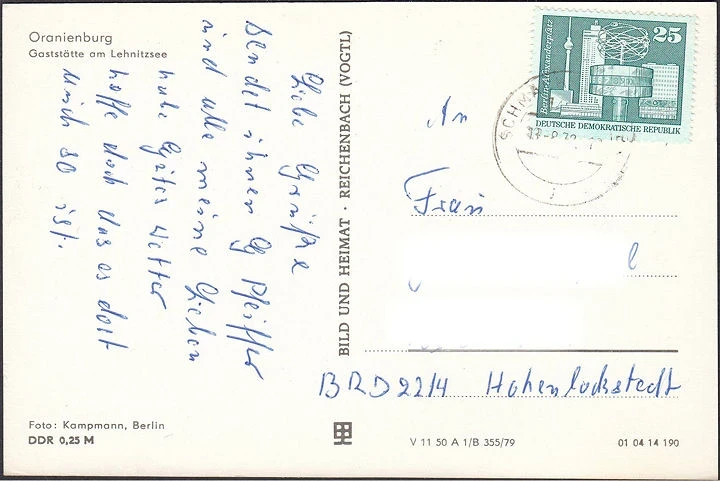 Oranienburg
Gaststätte am Lehnitzsee
Liebe Grüße
sendet ihnen Pfeiffer
und alle meine Lieben
habe Gutes Wetter
hoffe doch das es dort
auch so ist.
Foto: Kampmann, Berlin
DDR 0,25 M
BILD UND HEIMAT · REICHENBACH (VOGTL)
Berlin-Alexanderplatz
25
DEUTSCHE DEMOKRATISCHE REPUBLIK
SCHMA
An
Frau
BRD 2214 Hohenlockstedt
V 11 50 A 1/B 355/79
01 04 14 190